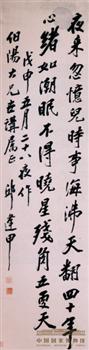 夜來忽憶兒時事海沸天翻四十年
心緒如潮眠不得曉星殘角五更天
戊申五月二十八夜作
伯陽大兄世講屬正 邱逢甲
中国国家博物馆